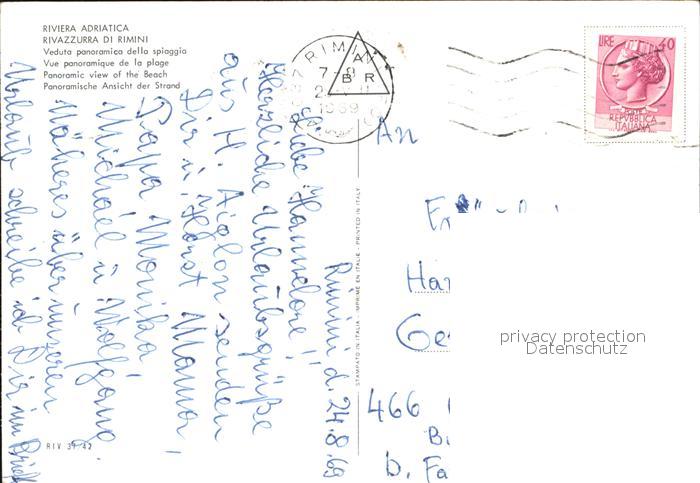 RIVIERA ADRIATICA
RIVAZZURRA DI RIMINI
Veduta panoramica della spiaggia
Vue panoramique de la plage
Panoramic view of the Beach
Panoramische Ansicht der Strand
RIMINI
7-8
1969
A
B R
LIRE 40
REPVBBLICA
ITALIANA
Rimini d. 24.8.69
Liebe Hannelore!
Herzliche Urlaubsgrüße
aus H. Aiglon senden
Dir u. Horst Mama,
Papa Monika
Michael u Wolfgang
Näheres über unseren
Urlaub schreibe ich Dir im Brief
STAMPATO IN ITALIA - IMPRIME EN ITALIE - PRINTED IN ITALY
An
Har
Ge
466
B.
D. Fa
privacy protection
Datenschutz
RIV 37/42